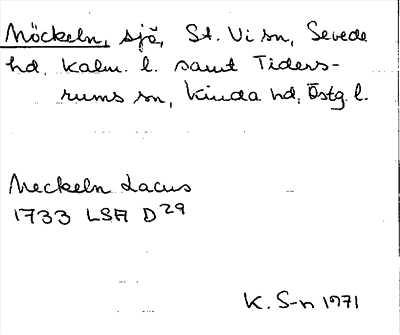 Möckeln, sjö, St. Vi sn, Sevede
hd, Kalm. l. samt Tiders-
rums sn, Kinda hd, Östg. l.
Meckeln Lacus
1733 LSA D29
K. S-n 1971